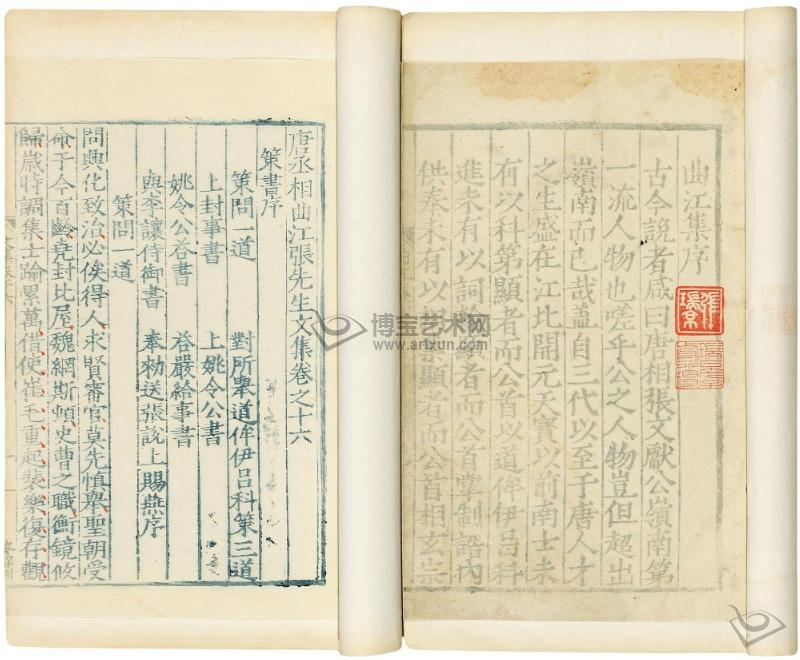 曲江集序
古今說者咸曰唐相張文獻公嶺南第
一流人物也嗟乎公之人物豈但超出
嶺南而已哉蓋自三代以至于唐人才
之生盛在江北開元天寶以前南士未
有以科第顯者而公首以道侔伊呂科
進未有以詞翰顯者而公首掌制誥內
供奉未有以 業顯者而公首相玄宗
唐丞相曲江張先生文集卷之十六
策書序
策問一道 對所舉道侔伊呂科策三道
上封事書 上姚令公書
姚令公荅書 荅嚴給事書
與李讓侍御書 奉勑送張說上賜燕序
策問一道
問興化致治必俟得人求賢審官莫先慎舉聖朝受
命于今百齡堯封比屋魏網斯頓史曹之職衡鏡攸
歸歲時調集士踰累萬借使崔毛重起裴樂復存觀
博宝艺术网
www.artxun.com